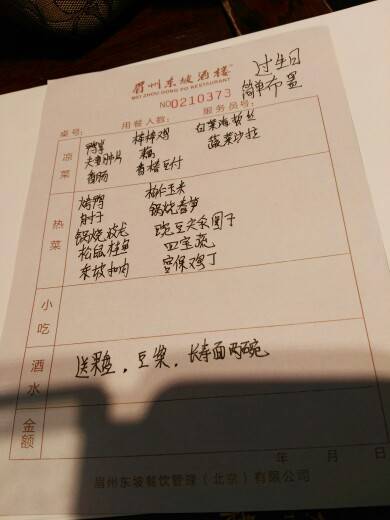 眉州东坡酒楼
MEI ZHOU DONG PO RESTAURANT
NO 0210373
过生日
简单布置
桌号: 用餐人数: 服务员号:
凉菜
鸭掌 棒棒鸡 白菜海蜇丝
夫妻肺片 蔬菜沙拉
香肠 香椿豆付
热菜
烤鸭 松仁玉米
肘子 锅烧春笋
豌豆尖丸子
松鼠桂鱼 四宝蔬
东坡扣肉 宫保鸡丁
小吃
酒水
送果盘,豆浆,长寿面两碗
金额
年 月 日
眉州东坡餐饮管理(北京)有限公司